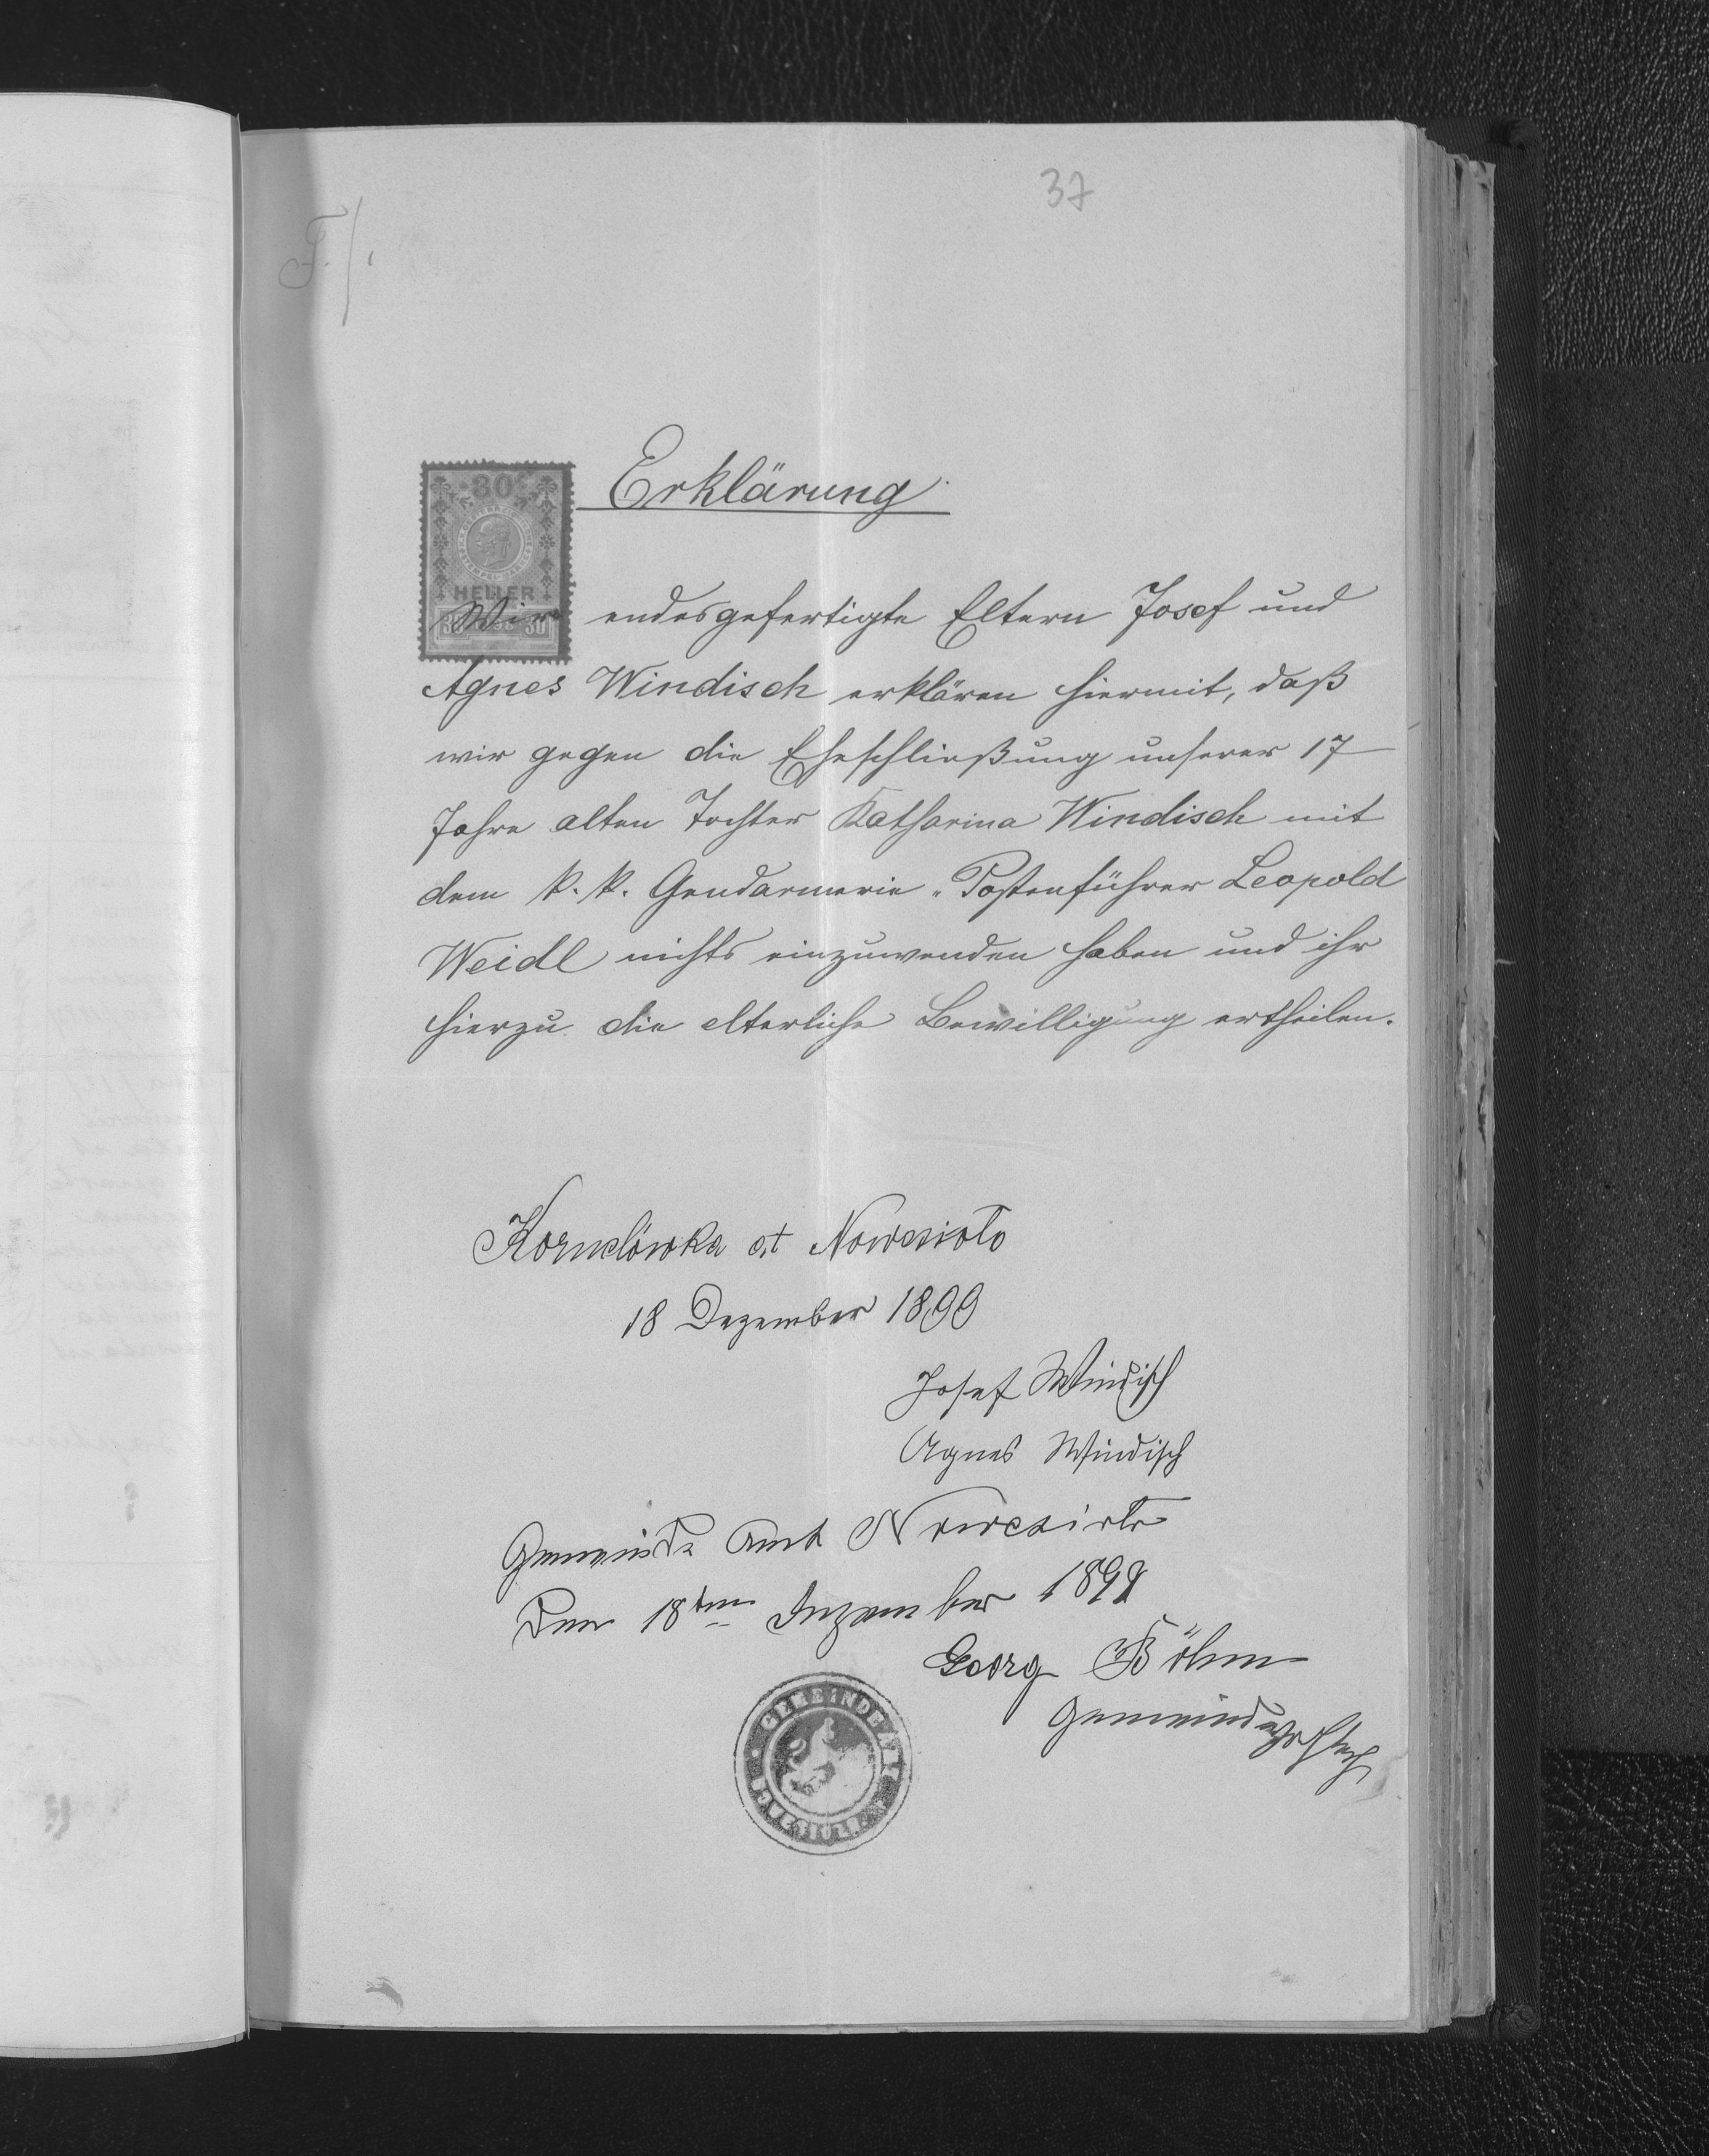 37
F./.
Erklärung.
30
HELLER
30 30
Wir endesgefertigte Eltern Josef und
Agnes Windisch erklären hiermit, daß
wir gegen die Eheschließung unserer 17
Jahre alten Tochter Katharina Windisch mit
dem k. k. Gendarmerie-Postenführer Leopold
Weidl nichts einzuwenden haben und ihr
hierzu die elterliche Bewilligung ertheilen.
Kornelówka at Nowesioło
18 Dezember 1899
Josef Windisch
Agnes Windisch
Gemeinde Amt Nowesioło
Den 18ten Dezember 1899
Georg Böhm
GEMEINDEAMT